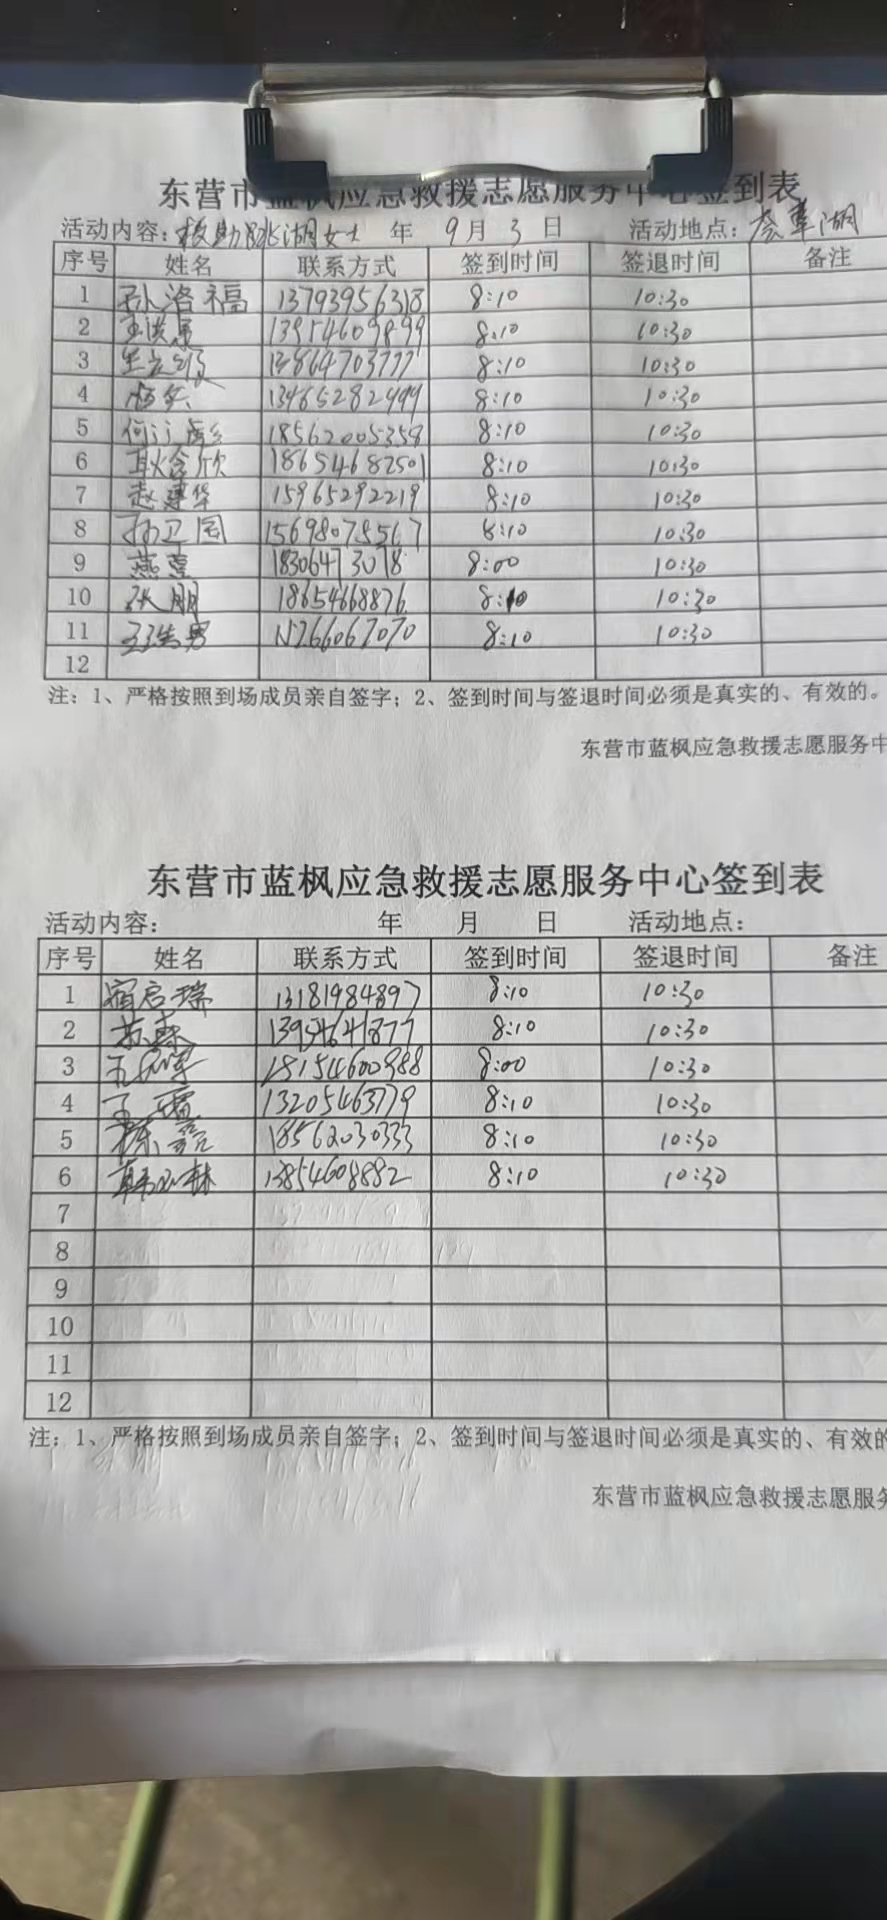 东营市蓝枫应急救援志愿服务中心签到表
活动内容：救助跳湖女士 年 9月 3 日 活动地点：湖
序号 姓名 联系方式 签到时间 签退时间 备注
1 孙洛福 13793956318 8:10 10:30
2 13954609899 8:10 10:30
3 13864703777 8:10 10:30
4 13465282499 8:10 10:30
5 18562005358 8:10 10:30
6 耿含欣 18654687501 8:10 10:30
7 赵建华 15965292219 8:10 10:30
8 孙卫国 15698075567 8:10 10:30
9 燕 18306473078 8:00 10:30
10 张朋 1865468876 8:10 10:30
11 8:10 10:30
12
注：1、严格按照到场成员亲自签字；2、签到时间与签退时间必须是真实的、有效的。
东营市蓝枫应急救援志愿服务中
东营市蓝枫应急救援志愿服务中心签到表
活动内容： 年 月 日 活动地点：
序号 姓名 联系方式 签到时间 签退时间 备注
1 宿启瑞 13181984897 8:10 10:30
2 13954641877 8:10 10:30
3 18154600988 8:00 10:30
4 13205463779 8:10 10:30
5 陈亮 18562030333 8:10 10:30
6 13854608882 8:10 10:30
7
8
9
10
11
12
注：1、严格按照到场成员亲自签字；2、签到时间与签退时间必须是真实的、有效的
东营市蓝枫应急救援志愿服务